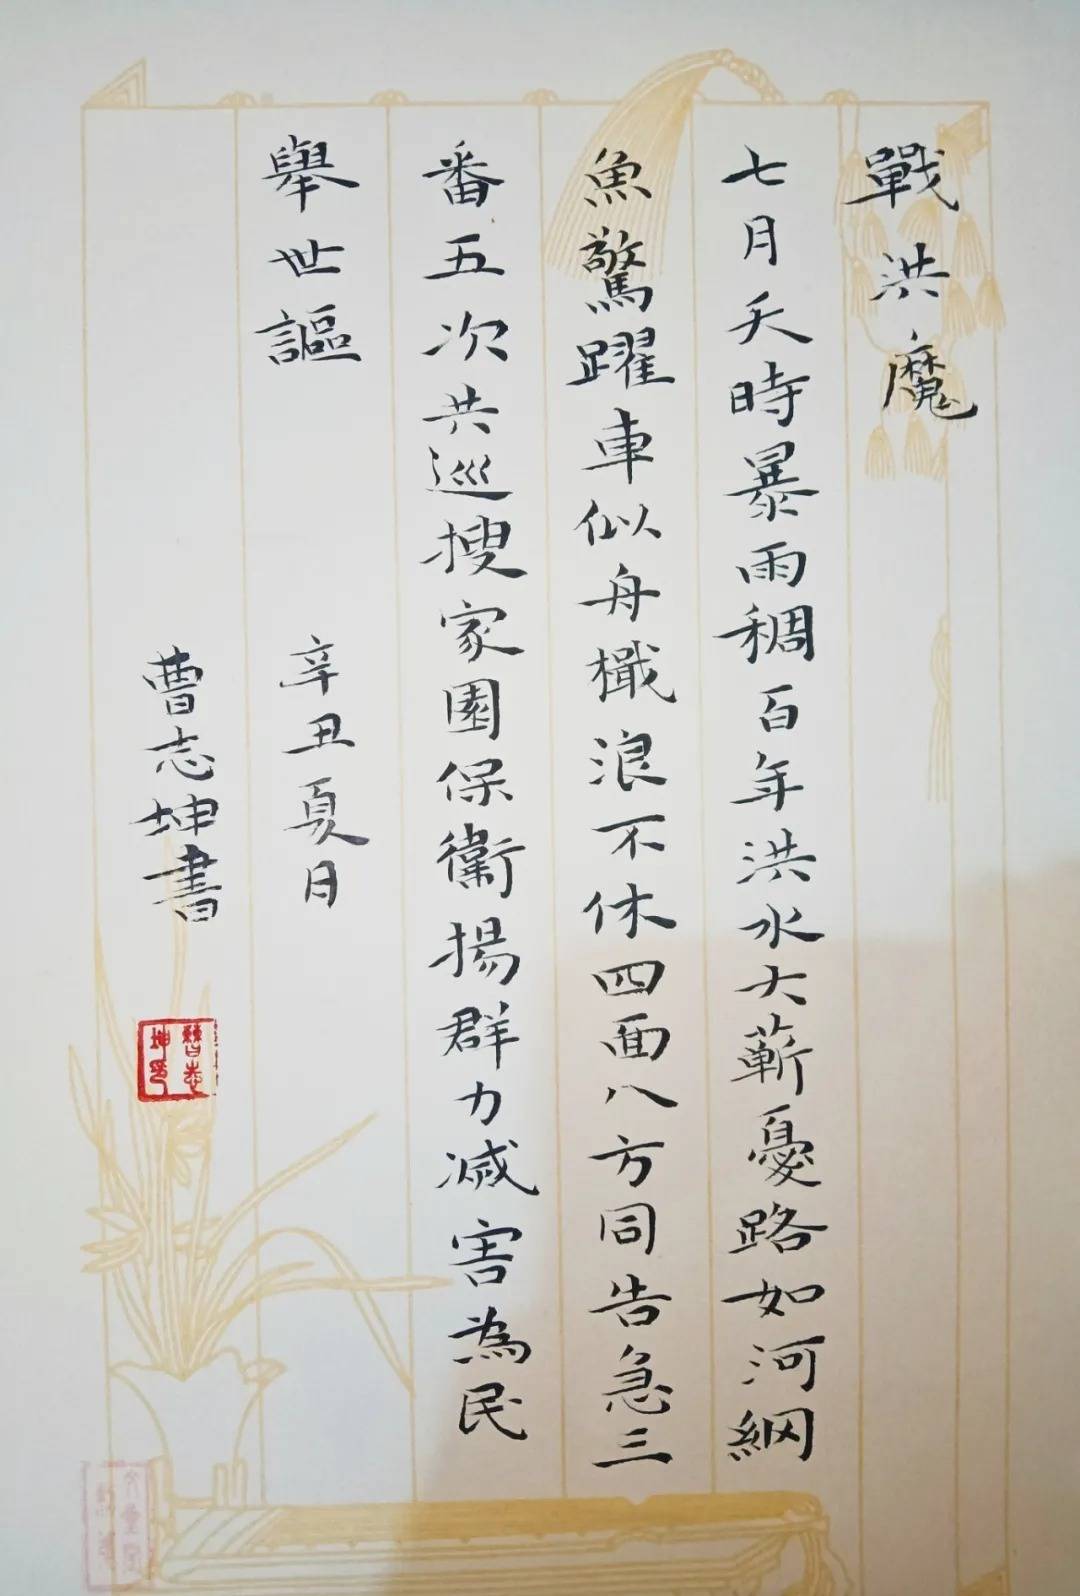 戰洪魔
七月天時暴雨稠百年洪水大蘄憂路如河網
魚驚躍車似舟檝浪不休四面八方同告急三
番五次共巡搜家園保衛揚群力減害為民
舉世謳
辛丑夏日
曹志坤書
曹志坤印